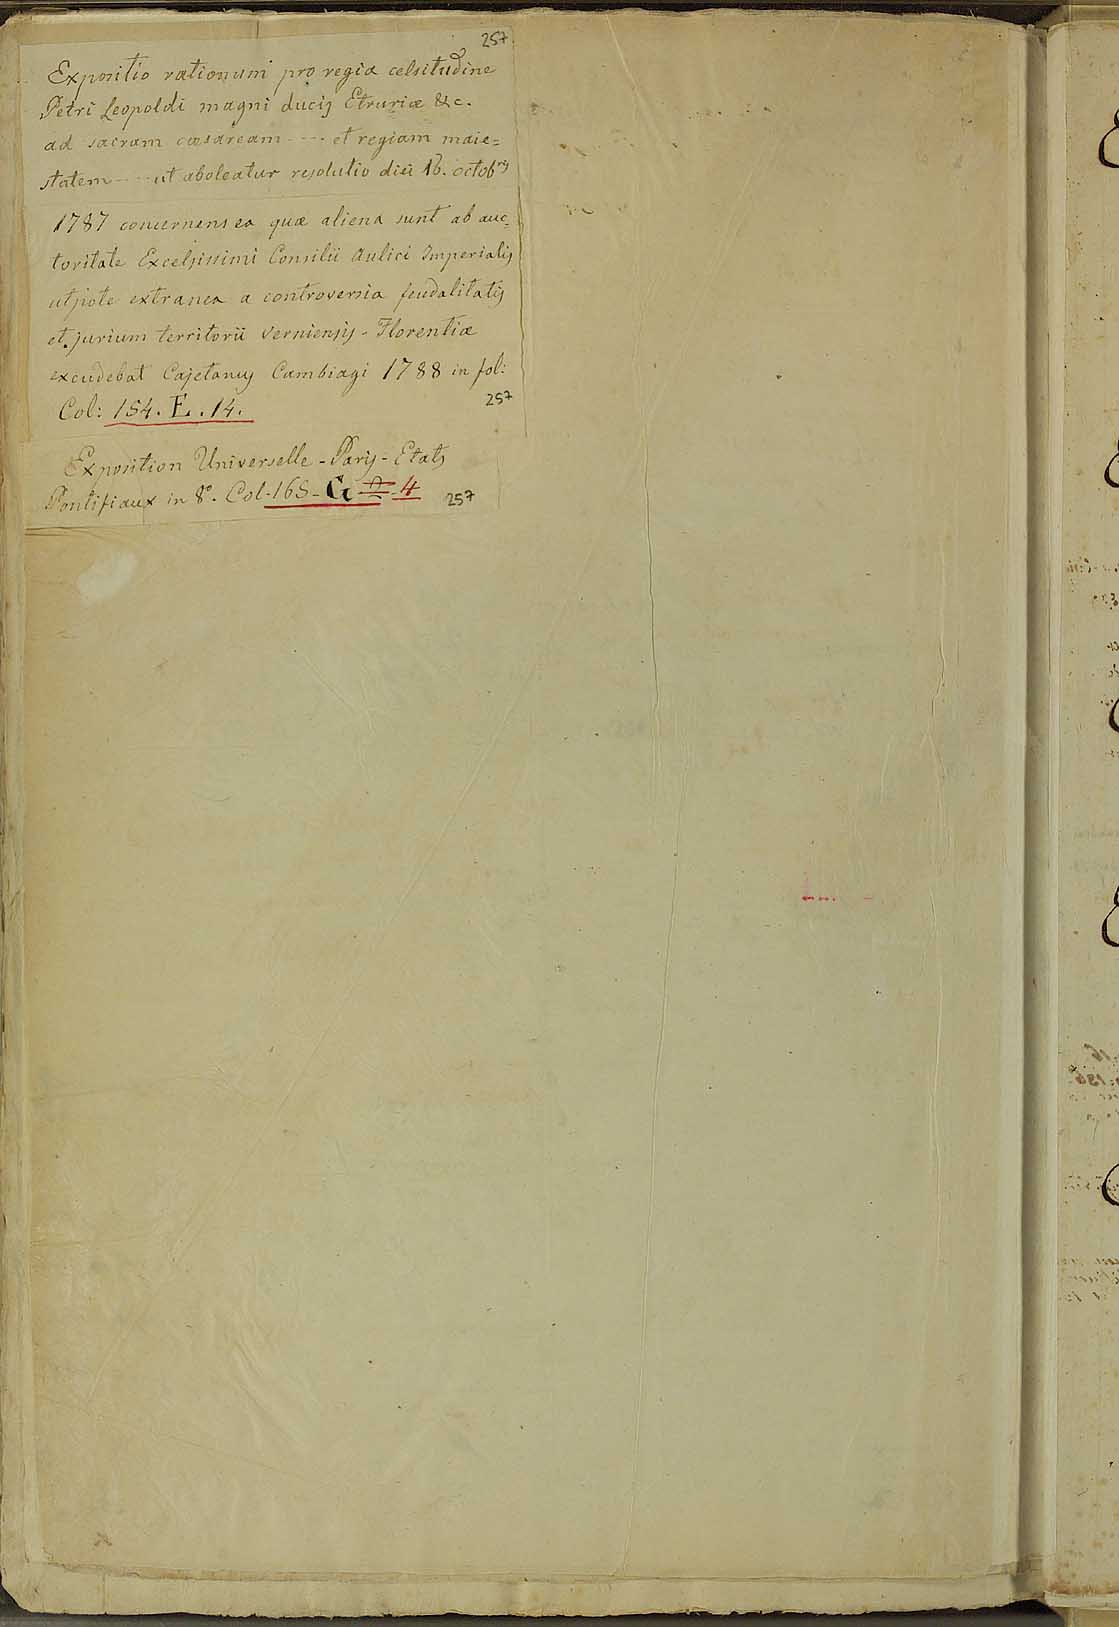 257
Expositio rationum pro regia celsitudine
Petri Leopoldi magni ducis Etruriæ &c.
ad sacram cæsaream ---- et regiam maie=
statem ---- ut aboleatur resolutio diei 16. octobris
1787 concernens ea quæ aliena sunt ab auc=
toritate Excelsissimi Consilii Aulici Imperialis
utpote extranea a controversia feudalitatis
et jurium territorii Verniensis - Florentiæ
excudebat Cajetanus Cambiagi 1788 in fol:
Col: 154. E. 14.
257
Exposition Universelle - Paris - Etats
Pontifiaux in 8°. Col. 168 - G 4
257